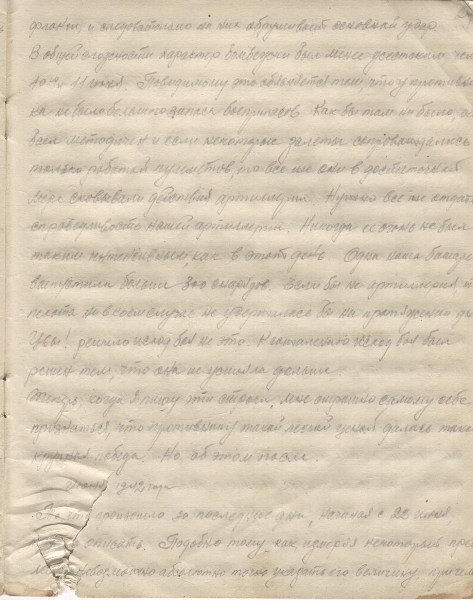 фланги, и следовательно на них обрушивает основной удар.
В общей сложности характер бомбежки был менее жестоким чем
10го и 11 июня. Повидимому это объясняется тем, что у противни-
ка не было большого запаса боеприпасов. Как бы там не было,
методичен и если некоторые залеты сопровождались
только работой пулеметов, но все же они в достаточной
мере сковывали действия артиллерии. Нужно все же отдать
справедливость нашей артиллерии. Никогда ее огонь не был
таким интенсивным, как в этот день. Одна наша батарея
выпустила больше 300 снарядов. Если бы не артиллерия,
пехота ни в коем случае не удержалась бы на протяжении дня
Увы! решило исход боя не это. К сожалению исход боя был
решен тем, что она не устояла дольше.
Теперь, когда я пишу эти строки, мне страшно самому себе
признаться, что противнику такой легкой ценой далась такая
крупная победа. Но об этом после.
июня 1942 года
за последние дни, начиная с 22 июня
описать. Подобно тому, как
невозможно абсолютно точно указать его величину